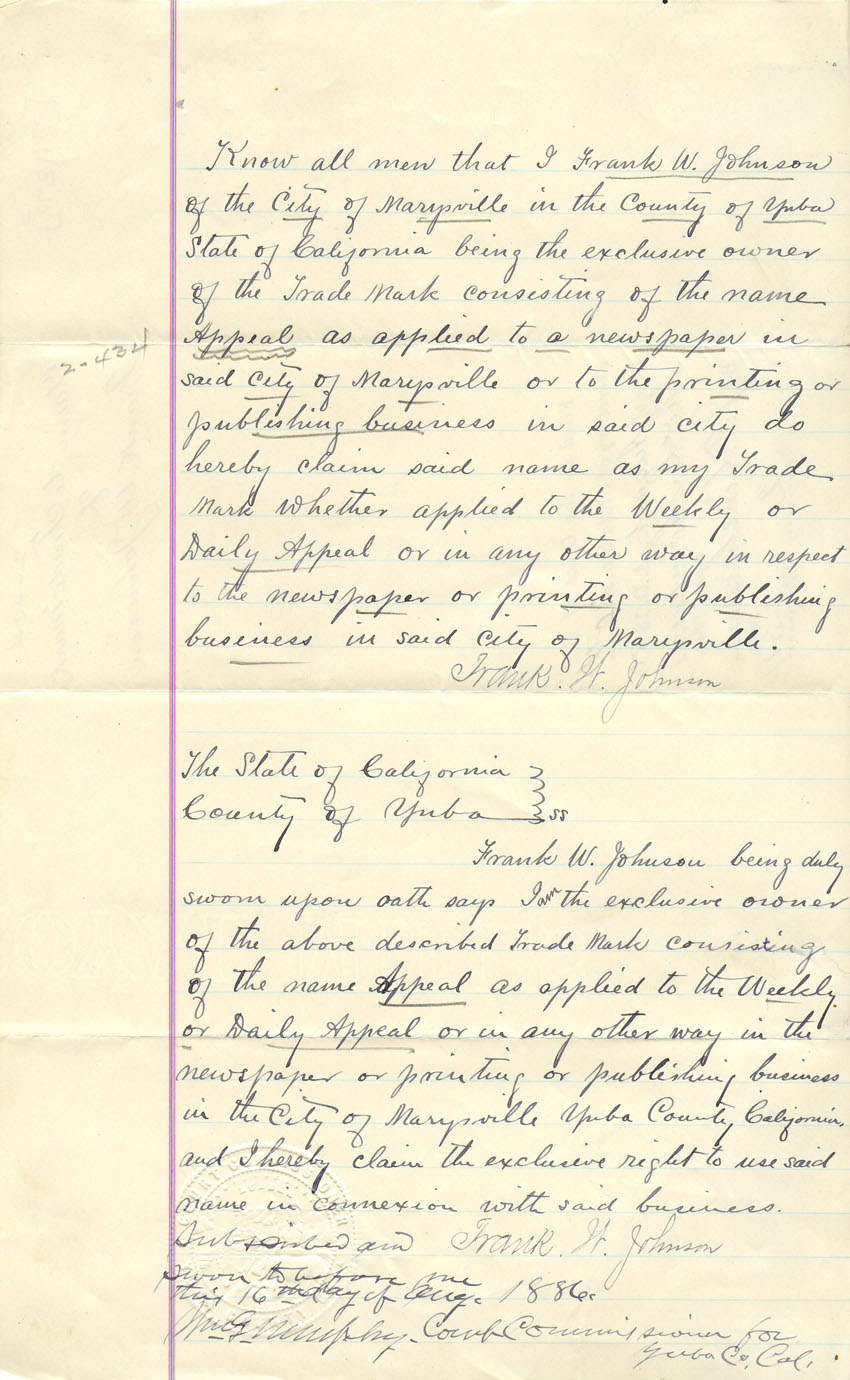 Know all men that I Frank W. Johnson
of the City of Marysville in the County of Yuba
State of California being the exclusive owner
of the Trade Mark consisting of the name
Appeal as applied to a newspaper in
2-434
said City of Marysville or to the printing or
publishing business in said city do
hereby claim said name as my Trade
Mark whether applied to the Weekly or
Daily Appeal or in any other way in respect
to the newspaper or printing or publishing
business in said City of Marysville.
Frank. W. Johnson
The State of California
County of Yuba ss
Frank W. Johnson being duly
sworn upon oath says I am the exclusive owner
of the above described Trade Mark consisting
of the name Appeal as applied to the Weekly
or Daily Appeal or in any other way in the
newspaper or printing or publishing business
in the City of Marysville Yuba County California,
and I hereby claim the exclusive right to use said
name in connexion with said business.
Subscribed and Frank. W. Johnson
sworn to before me
this 16th day of Aug. 1886.
Wm G. Murphy. Commissioner for
Yuba Co, Cal.